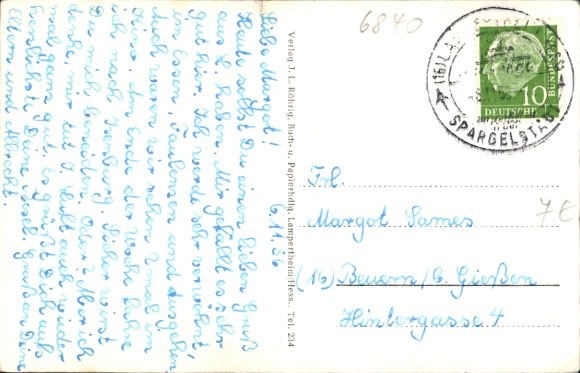 6840
Liebe Margot!
6.11.56
Heute sollst Du einen lieben Gruß
aus L. haben. Mir gefällt es sehr
gut hier. Ich werde sehr verwöhnt,
im Essen, Faulenzen und Ausgehen
doch waren wir schon 2 mal im
Kino. Am Ende der Woche fahre
ich nach Sicher wirst
Du mich beneiden. Oder? Aber ich
denke, mir tut's Luft auch wieder
mal ganz gut. Es grüßt Dich aufs
herzlichste Deine Grüße an Deine
Eltern und Albrecht.
Verlag J. L. Röhrig, Buch- u. Papierhdlg. Lampertheim/Hess. Tel. 234
(16)
SPARGELSTADT
10
DEUTSCHE
BUNDESPOST
Frl.
Margot Sames
7€
(16) Beuern/b. Gießen
Hintergasse 4